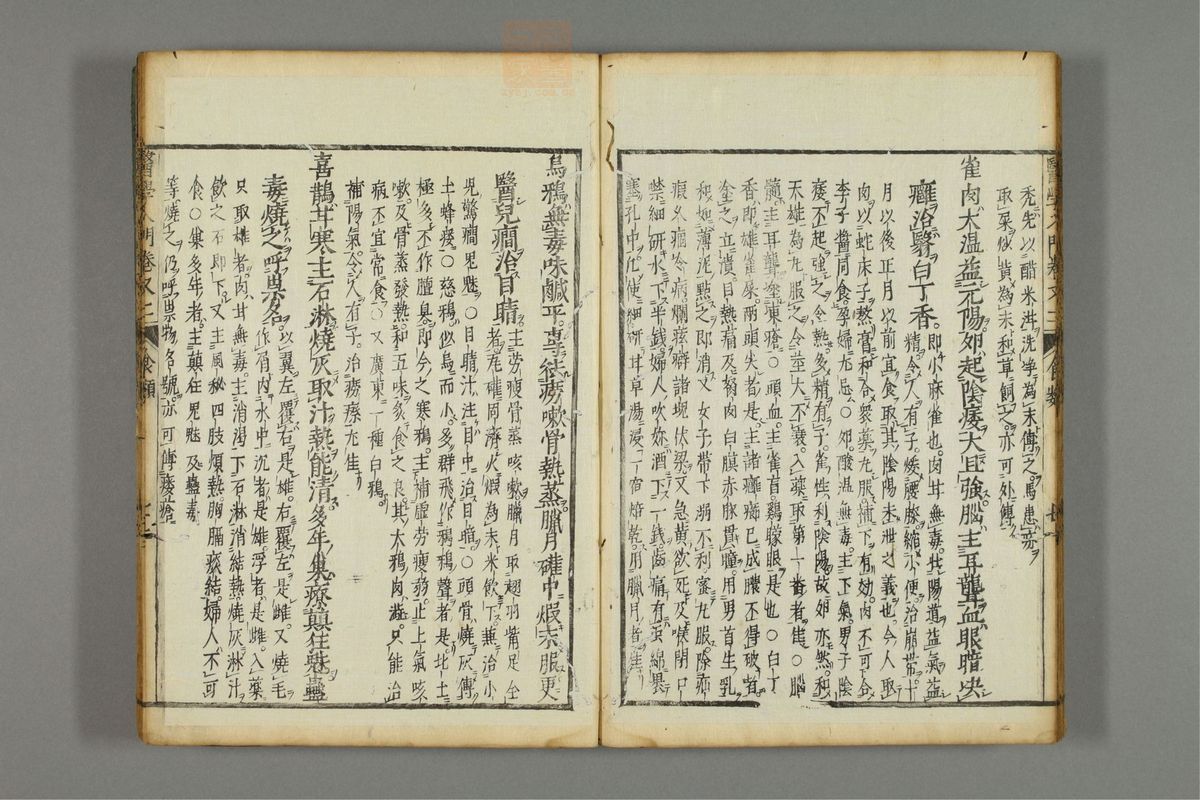 禿先以醋米泔洗淨為末傅之馬患疥
取屎似黃為末和草飼之亦可外傅
雀肉大溫益元陽卵起陰痿大且強腦主耳聾血眼暗決
癰治翳白丁香
即小麻雀也肉甘無毒壯陽道益氣益
精令人有子煖腰膝縮小便治崩帶十
月以後正月以前宜食取其陰陽未泄之義也今人取
肉以蛇床子熬膏和合眾藥丸服補下有効肉不可合
李子醬同食孕婦尤忌〇卵酸溫無毒主下氣男子陰
痿不起強之令熱多精有子雀性利陰陽故卵亦然和
天雄為丸服之令莖大不衰入藥取第一番者佳〇腦
髓主耳聾塗凍瘡〇頭血主雀盲雞矇眼是也〇白丁
香即雄雀屎兩頭尖者是主諸癰癤已成膿不得破者
塗之立潰目熱痛及努肉白膜赤脉貫瞳用男首生乳
和如薄泥點之即消又女子帶下溺不利蜜丸服除疝
瘕久痼冷病爛痃癖諸塊伏梁又急黃欲死及喉閉口
禁細研水下半錢婦人吹妳酒下一錢齒痛有蟲綿裹
塞孔中凡使細研甘草湯浸一宿焙乾用臘月者佳
烏鴉無毒味鹹平專祛癆嗽骨熱蒸臘月礶中煆末服更
醫兒癇治目睛
主勞瘦骨蒸咳嗽臘月取翅羽觜足全
者瓦礶固濟火煆為末米飲下兼治小
兒驚癇鬼魅〇目睛汁注目中治目暗〇頭骨燒灰傅
土蜂瘻〇慈鴉似烏而小多群飛作鴉鴉聲者是北土
極多不作膻臭即今之寒鴉主補虛勞瘦弱止上氣咳
嗽及骨蒸發熱和五味炙食之良其大鴉肉澁只能治
病不宜常食〇又廣東一種白鴉
補陽氣令人有子治癆瘵尤佳
喜鵲甘寒主石淋燒灰取汁熱能清多年巢療顛狂魅蠱
毒燒之呼祟名
以翼左覆右是雄右覆左是雌又燒毛
作屑內水中沉者是雄浮者是雌入藥
只取雄者肉甘無毒主消渴下石淋消結熱燒灰淋汁
飲之石即下又主風秘四肢煩熱胸膈痰結婦人不可
食〇巢多年者主顛狂鬼魅及蠱毒
等燒之仍呼祟物名號亦可傅瘻瘡